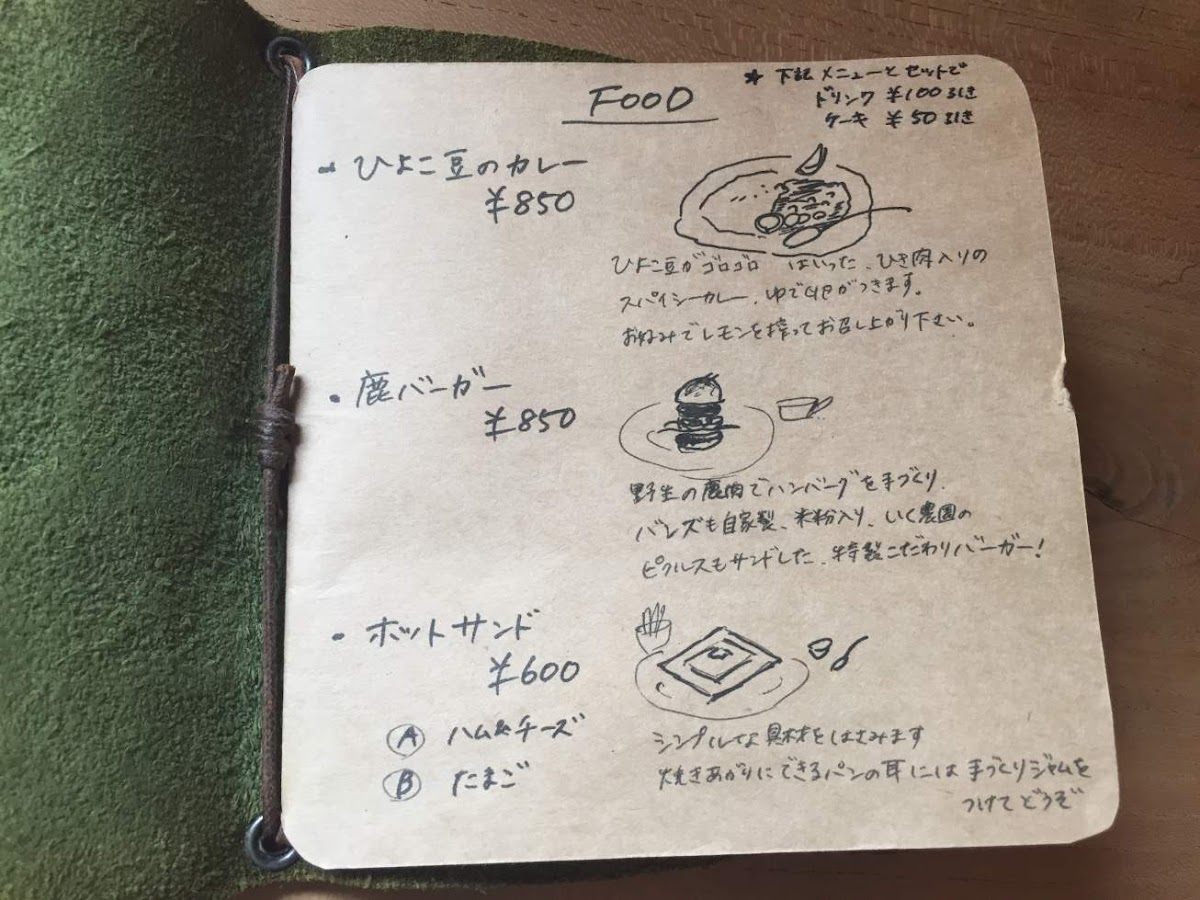 FOOD
* 下記メニューとセットで
ドリンク ¥100引き
ケーキ ¥50引き
・ひよこ豆のカレー
¥850
ひよこ豆がゴロゴロ はいった、ひき肉入りの
スパイシーカレー、ゆで卵がつきます。
お好みでレモンを搾ってお召し上がり下さい。
・鹿バーガー
¥850
野生の鹿肉でハンバーグを手づくり、
バンズも自家製、米粉入り、いく農園の
ピクルスもサンドした、特製こだわりバーガー!
・ホットサンド
¥600
Ⓐ ハム&チーズ
Ⓑ たまご
シンプルな具材をはさみます
焼きあがりにできるパンの耳には手づくりジャムを
つけてどうぞ